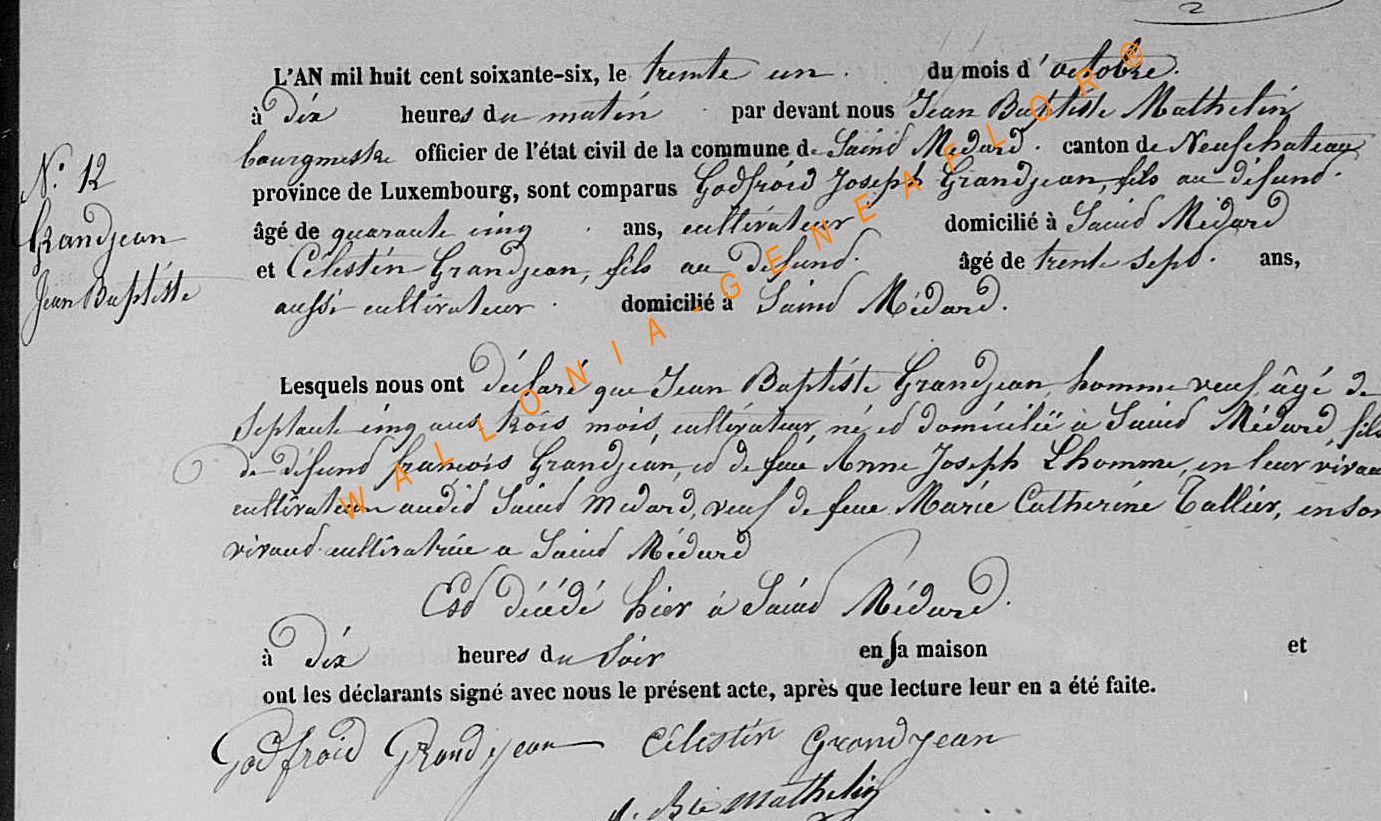 2
L'AN mil huit cent soixante-six, le trente un du mois d'octobre.
à Dix heures du matin par devant nous Jean Baptiste Mathelin
bourgmestre officier de l'état civil de la commune de Saint Médard. canton de Neufchateau
province de Luxembourg, sont comparus Godfroid Joseph Grandjean, fils au défunt.
âgé de quarante cinq ans, cultivateur domicilié à Saint Médard
et Célestin Grandjean, fils au défunt. âgé de trente sept. ans,
aussi cultivateur. domicilié à Saint Médard.
N.° 12
Grandjean
Jean Baptiste
Lesquels nous ont déclaré que Jean Baptiste Grandjean, homme veuf, âgé de
Septante cinq ans, trois mois, cultivateur, né et domicilié à Saint Médard, fils
de défunt françois Grandjean, et de feue Anne Joseph Lhomme, en leur vivant
cultivateurs audit Saint Médard, veuf de feue Marie Catherine Tallier, en son
vivant cultivatrice a Saint Médard
Est décédé hier à Saint Médard.
à Dix heures du Soir en sa maison et
ont les déclarants signé avec nous le présent acte, après que lecture leur en a été faite.
Godfroid Grandjean Célestin Grandjean
J. Bte Mathelin
WALLONIA-GENEALOR®